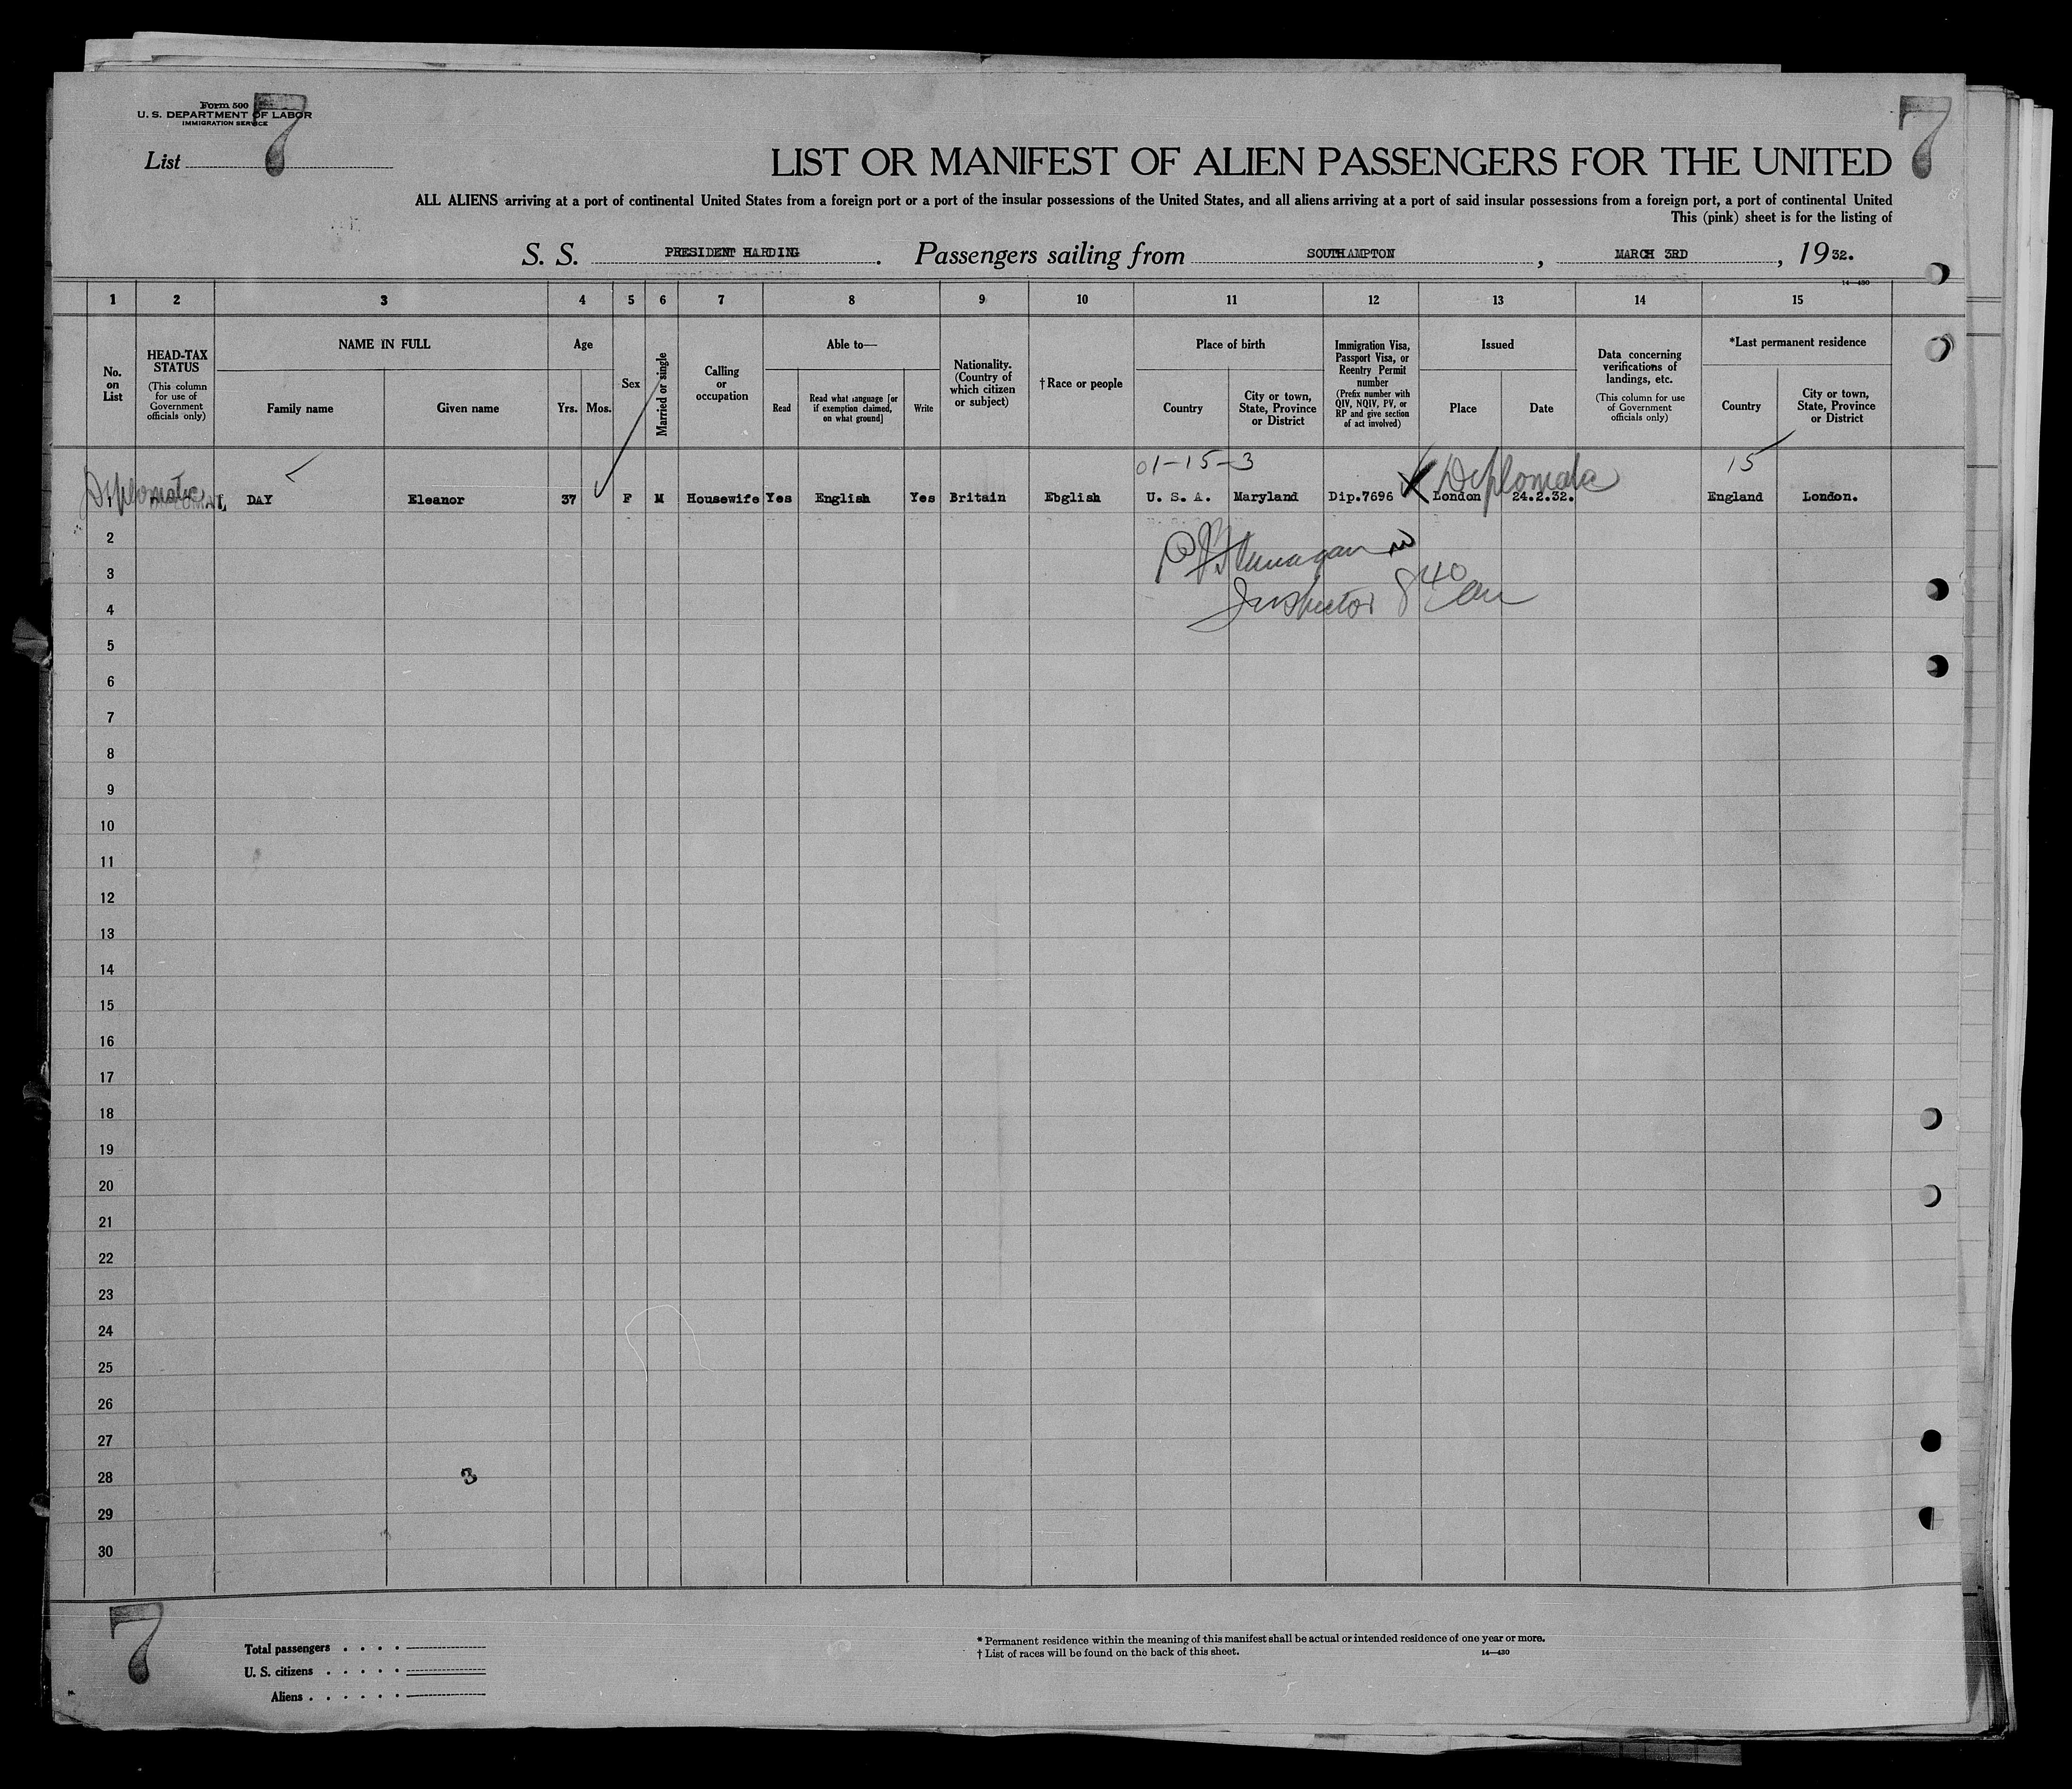 Form 500
U. S. DEPARTMENT OF LABOR
IMMIGRATION SERVICE
7
7
List
LIST OR MANIFEST OF ALIEN PASSENGERS FOR THE UNITED
ALL ALIENS arriving at a port of continental United States from a foreign port or a port of the insular possessions of the United States, and all aliens arriving at a port of said insular possessions from a foreign port, a port of continental United
This (pink) sheet is for the listing of
S. S. PRESIDENT HARDING. Passengers sailing from SOUTHAMPTON, MARCH 3RD, 1932.
14—430
1 2 3 4 5 6 7 8 9 10 11 12 13 14 15
No. on List
HEAD-TAX STATUS (This column for use of Government officials only)
NAME IN FULL
Family name
Given name
Age
Yrs.
Mos.
Sex
Married or single
Calling or occupation
Able to—
Read
Read what language [or if exemption claimed, on what ground]
Write
Nationality. (Country of which citizen or subject)
† Race or people
Place of birth
Country
City or town, State, Province or District
Immigration Visa, Passport Visa, or Reentry Permit number (Prefix number with QIV, NQIV, PV, or RP and give section of act involved)
Issued
Place
Date
Data concerning verifications of landings, etc. (This column for use of Government officials only)
*Last permanent residence
Country
City or town, State, Province or District
01-15-3 Diplomatic 15
Diplomatic DAY Eleanor 37 F M Housewife Yes English Yes Britain Ebglish U. S. A. Maryland Dip.7696 London 24.2.32. England London.
2
3
Inspector 8 40 am
4
5
6
7
8
9
10
11
12
13
14
15
16
17
18
19
20
21
22
23
24
25
26
27
28 3
29
30
7
Total passengers . . . .
U. S. citizens . . . . .
Aliens . . . . . .
* Permanent residence within the meaning of this manifest shall be actual or intended residence of one year or more.
† List of races will be found on the back of this sheet. 14—430